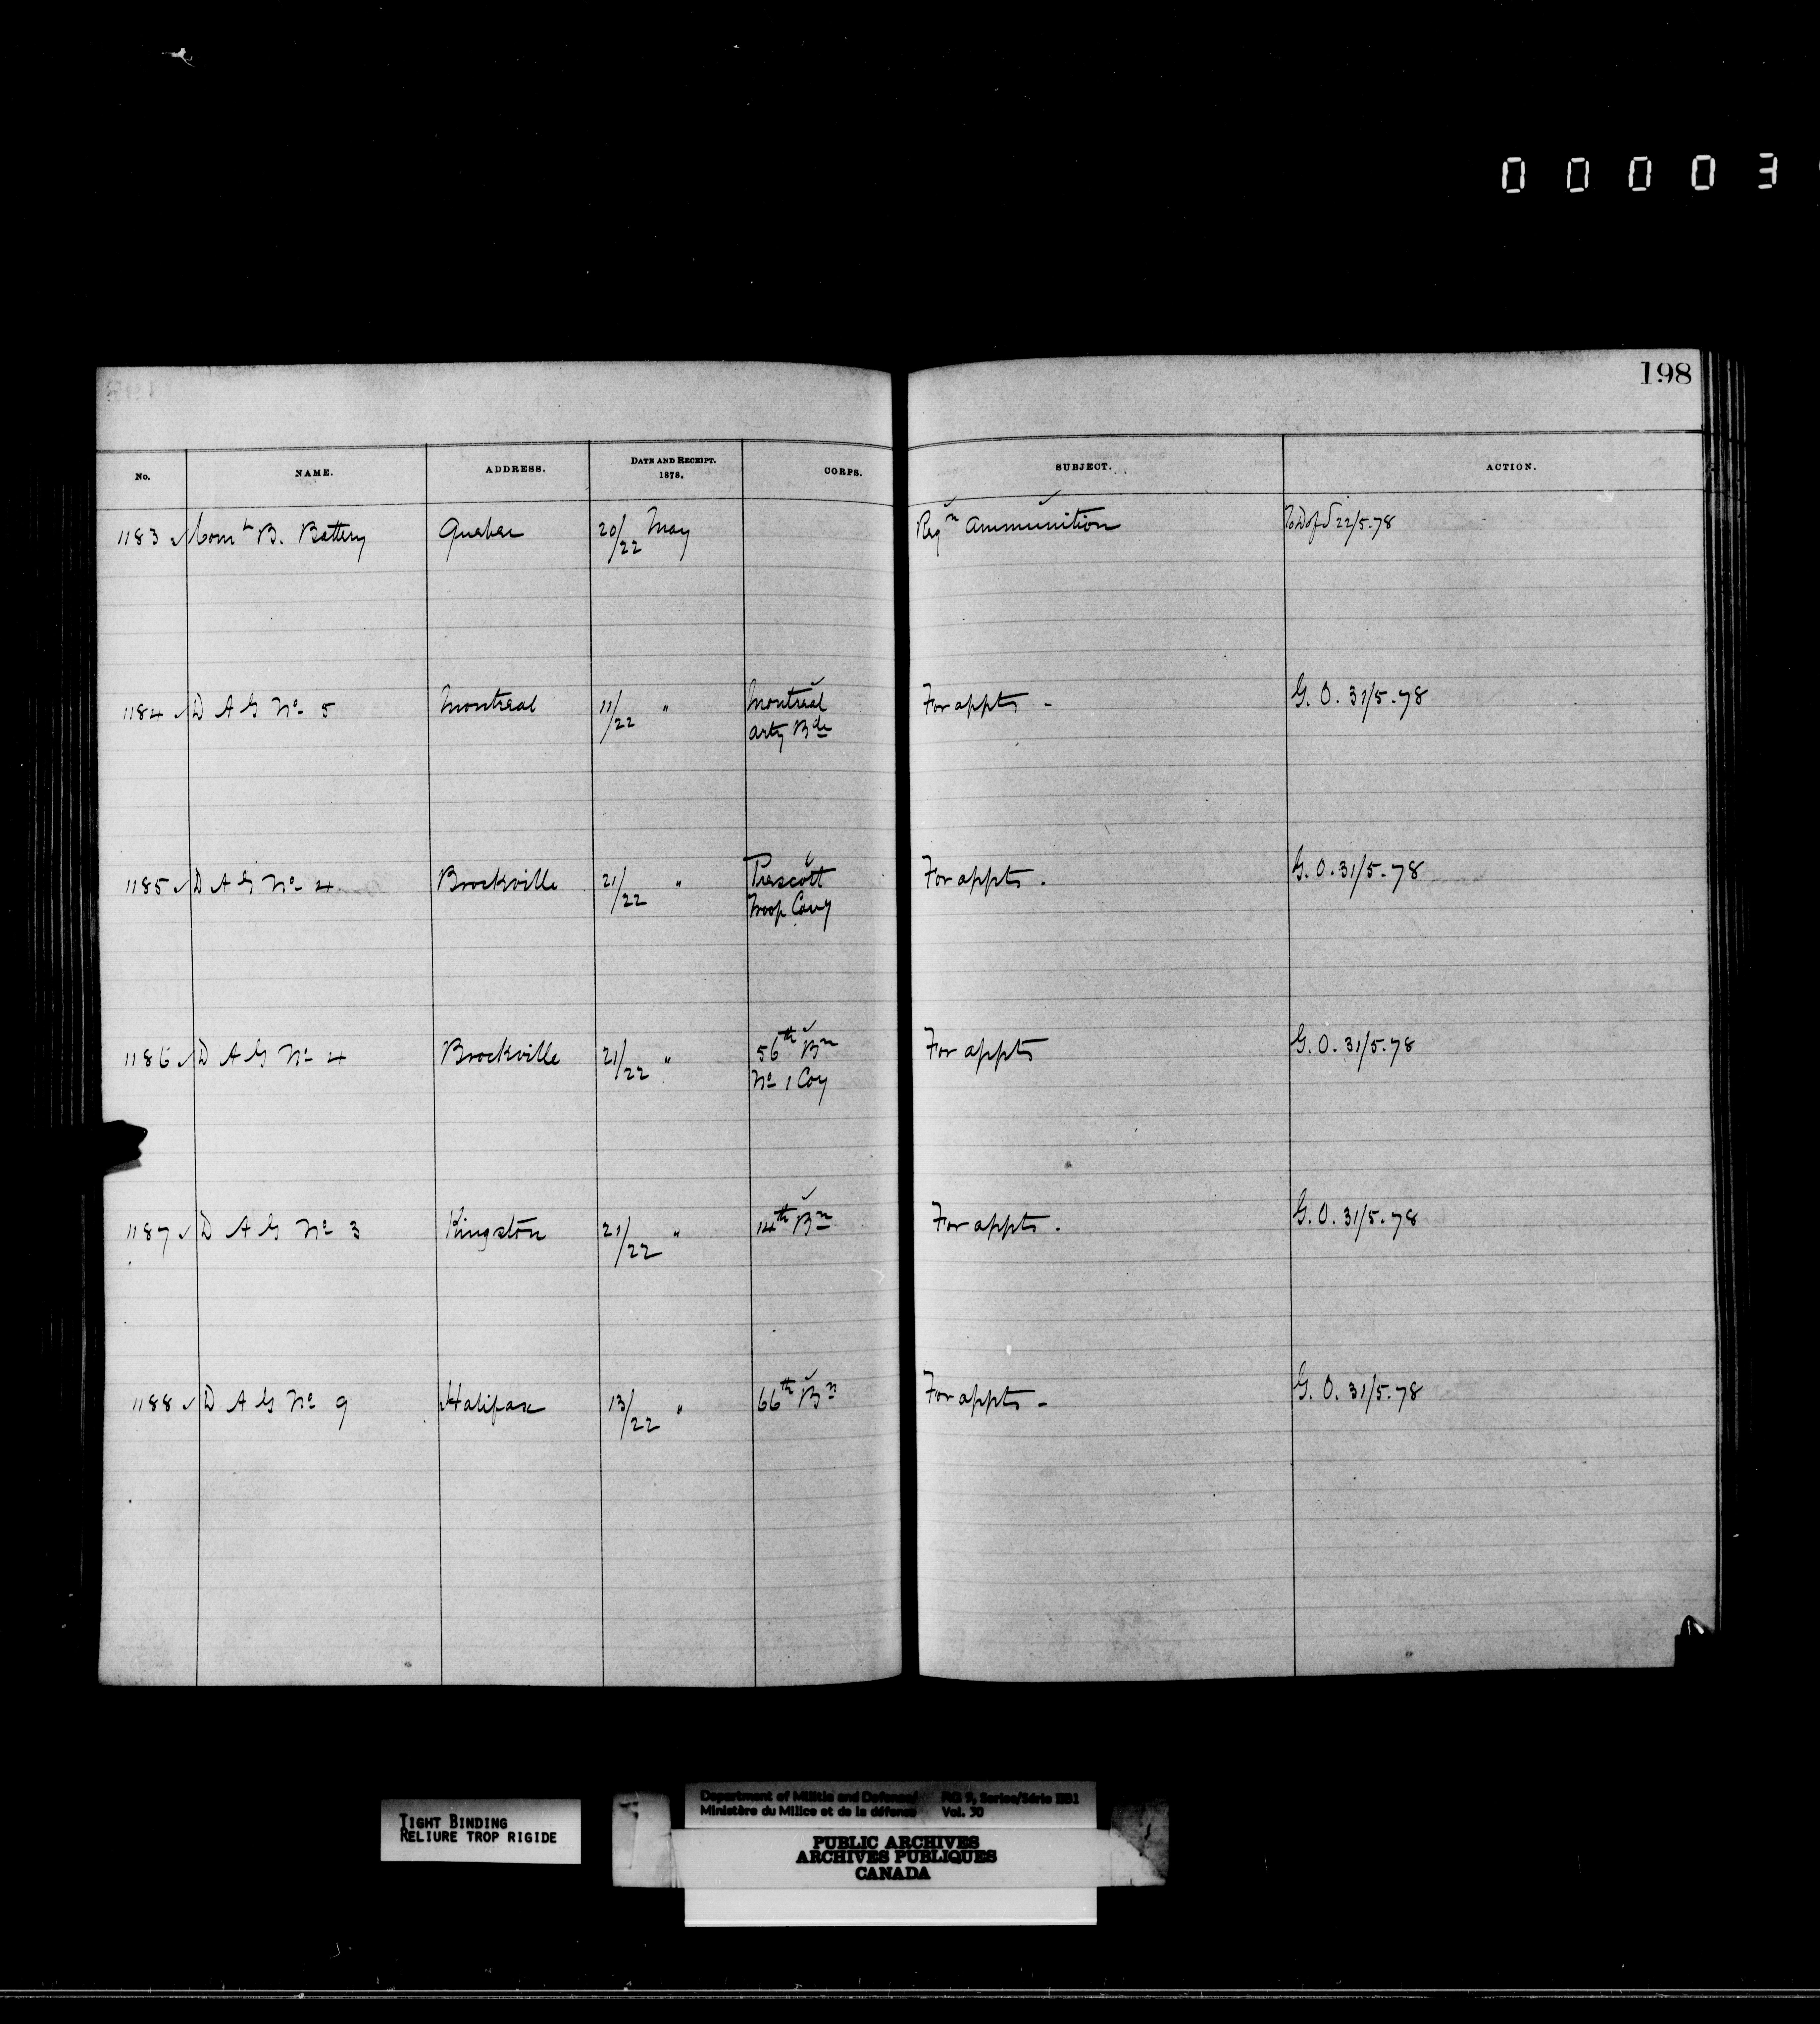 0 0 0 0 3
198
No. NAME. ADDRESS. DATE AND RECEIPT. 1878. CORPS. SUBJECT. ACTION.
1183 ✓ Comt B. Battery Quebec 20/22 May Reqn ammunition To D of S 22/5.78
1184 ✓ D A G No 5 Montreal 11/22 " Montreal For appts - G. O. 31/5.78
Arty Bde
1185 ✓ D A G No 4 Brockville 21/22 " Prescott For appts. G. O. 31/5.78
Troop Cavy
1186 ✓ D A G No 4 Brockville 21/22 " 56th Bn For appts G. O. 31/5.78
No 1 Coy
1187 ✓ D A G No 3 Kingston 21/22 " 14th Bn For appts. G. O. 31/5.78
1188 ✓ D A G No 9 Halifax 13/22 " 66th Bn For appts - G. O. 31/5.78
TIGHT BINDING
RELIURE TROP RIGIDE
Department of Militia and Defence/ RG 9, Series/Série IIB1
Ministère du Milice et de la défense Vol. 30
PUBLIC ARCHIVES
ARCHIVES PUBLIQUES
CANADA